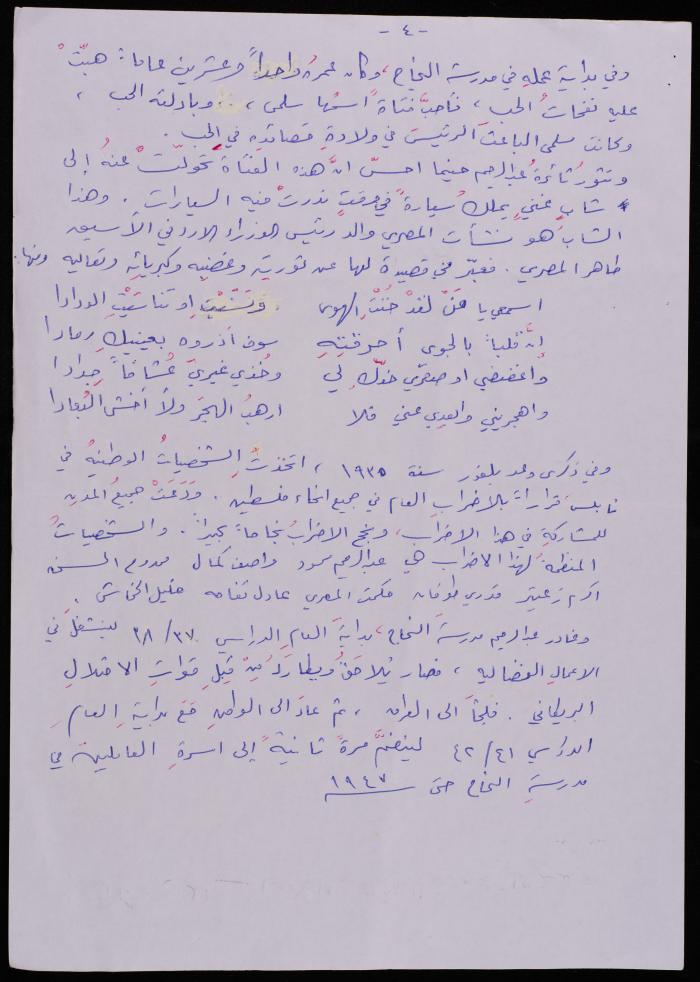 - ٤ -
وفي بداية عملهِ في مدرسة النجاح، وكان عمرهُ واحداً وعشرين عاماً هبّتْ
عليه نفحاتُ الحب، فأحبَّ فتاةً اسمُها سلمى، .. وبادلته الحب،
وكانت سلمى الباعثَ الرئيسَ في ولادةِ قصائدِهِ في الحب.
وتثورُ ثائرةُ عبدالرحيم حينما احسّ انَّ هذه الفتاةَ تحولّتْ عنهُ إلى
شابٍ غنيٍ يملكُ سيارةً في وقتٍ ندرتْ فيه السيارات. وهذا
الشابُ هو نشأت المصري والد رئيس الوزراء الاردني الأسبق
طاهر المصري. فعبّر في قصيدة لها عن ثورتِهِ وغضبِه وكبريائِهِ وتعاليه ومنها:
اسمعي يا هَنّ لقدْ خُنْتِ الهوى    وتنسّيْتِ او تناسَيْتِ الودادا
إنَّ قلباً بالجوى أحرقتِهِ    سوف أذروه بعينيكِ رمادا
واغضبي او صعّري خدّكِ لي    وخُذي غيريَ عُشاقاً جدادا
واهجريني وابعدي عني فلا    ارهبُ الهجرَ ولا أخشى البُعادا
وفي ذكرى وعد بلفور سنة ١٩٣٥، اتخذتْ الشخصياتُ الوطنيهُ في
نابلسَ قراراً بالاضرابِ العام في جميع انحاء فلسطين. ودَعَتْ جميعُ المدنِ
للمشاركةِ في هذا الاضراب، ونجح الاضرابُ نجاحاً كبيراً. والشخصياتُ
المنظمةُ لهذا الاضراب هي عبدالرحيم محمود واصف كمال ممدوح السخن
اكرم زعيتر قدري طوقان حكمت المصري عادل تفاحه خليل الخماش.
وغادر عبدالرحيم مدرسةَ النجاح، بدايةَ العامِ الدراسي ٣٧/ ٣٨ ليشتغلَ في
الاعمالِ النضاليه، فصار يُلاحَقُ ويطارَدُ مِنْ قِبَلِ قواتِ الاحتلالِ
البريطاني. فلجأَ الى العراق، ثم عادَ الى الوطنِ مَعَ بدايةِ العامِ
الدراسي ٤١/ ٤٢ لينضمَّ مرةً ثانيةً إلى اسرةِ العاملين في
مدرسةِ النجاح حتى ١٩٤٧